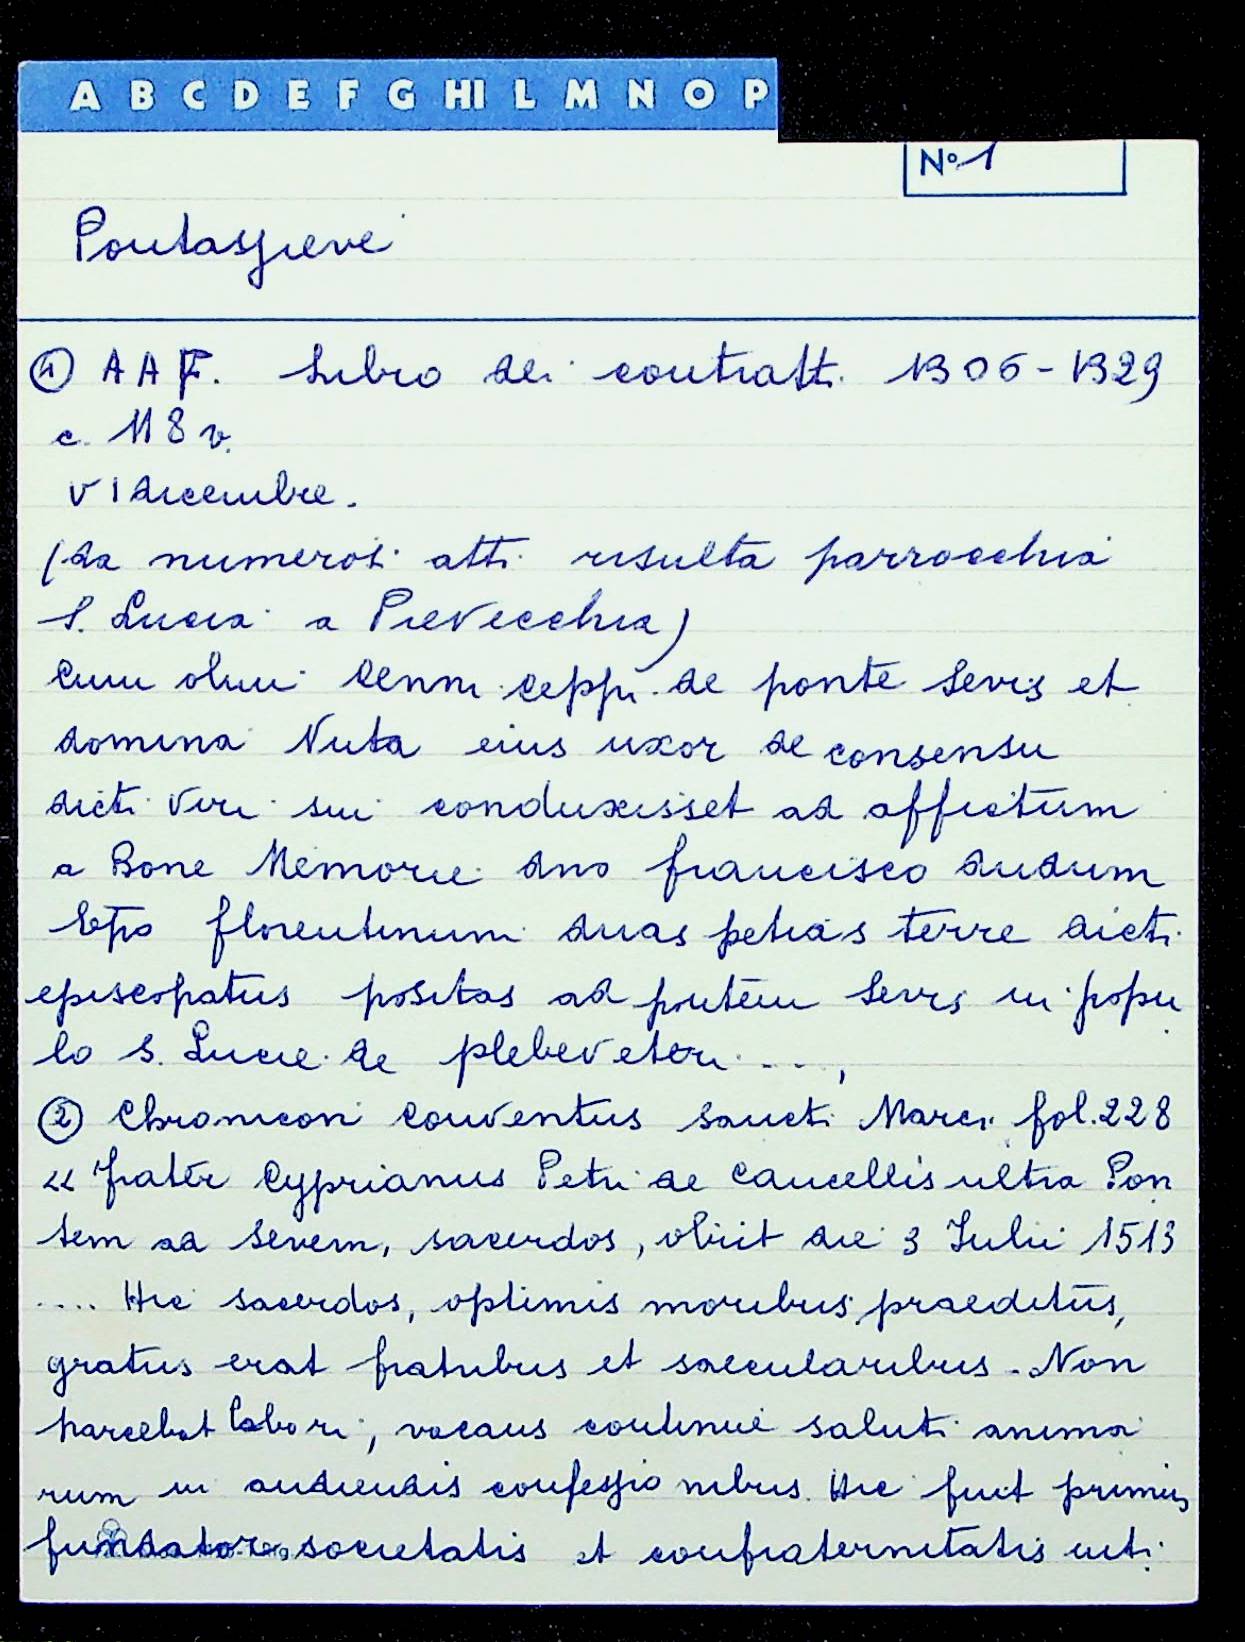 A B C D E F G HI L M N O P
N° 1
Pontassieve
① A A F. Libro dei contratti 1306-1329
c. 118 v.
VI dicembre.
(da numerosi atti risulta parrocchia
S. Lucia a Pievecchia)
Cum olim Cenni Ceppi de ponte Sevis et
domina Nuta eius uxor de consensu
dicti viri sui conduxisset ad affictum
a Bone Memorie dno francisco dudum
Epo florentinum duas petias terre dicti
episcopatus positas ad pontem Sevis in popu
lo S. Lucie de plebeveteri ....,
② Chronicon conventus sancti Marci fol. 228
« frater Cyprianus Petri de Cancellis ultra Pon
tem ad Sevem, sacerdos, obiit die 3 Iulii 1513
.... Hic sacerdos, optimis moribus praeditus,
gratus erat fratribus et saecularibus. Non
parcebat labori, vacans continue saluti anima
rum in audiendis confessionibus. Hic fuit primus
fundator societatis et confraternitatis inti